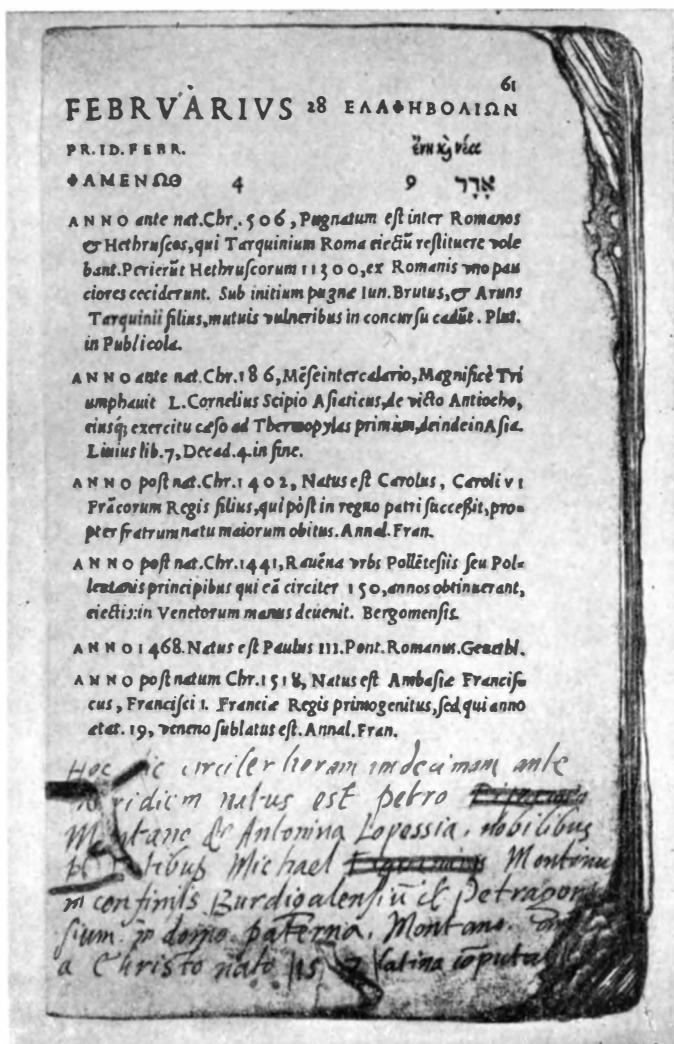 61
FEBRVARIVS 28 ΕΛΑΦΗΒΟΛΙΩΝ
PR. ID. FEBR. ἕνη κỳ νέα
ΦΑΜΕΝΩΘ 4 9 אֲדָר
ANNO ante nat. Chr. 506, Pugnatum est inter Romanos
& Hethruscos, qui Tarquinium Roma eiectũ restituere vole
bant. Perierũt Hethruscorum 11300, ex Romanis vno pau
ciores ceciderunt. Sub initium pugnæ Iun. Brutus, & Aruns
Tarquinii filius, mutuis vulneribus in concursu cadũt. Plut.
in Publicola.
ANNO ante nat. Chr. 186, Mẽse intercalario, Magnificè Tri
umphauit L. Cornelius Scipio Asiaticus, de victo Antiocho,
eiusq; exercitu cæso ad Thermopylas primùm, deinde in Asia.
Liuius lib. 7, Decad. 4. in fine.
ANNO post nat. Chr. 1402, Natus est Carolus, Caroli VI
Frãcorum Regis filius, qui pòst in regno patri successit, pro-
pter fratrum natu maiorum obitus. Annal. Fran.
ANNO post nat. Chr. 1441, Rauẽna vrbs Pollẽtesiis seu Pol-
lentanis principibus qui eã circiter 150, annos obtinuerant,
eiectis: in Venetorum manus deuenit. Bergomensis.
ANNO 1468. Natus est Paulus III. Pont. Romanus. Genebl.
ANNO post natum Chr. 1518, Natus est Ambasiæ Francis-
cus, Francisci I. Franciæ Regis primogenitus, sed qui anno
ætat. 19, veneno sublatus est. Annal. Fran.
Hoc die circiter horam undecimam ante
meridiem natus est petro
Montano & Antonina Lopessia, nobilibus
parentibus Michael Montanus
in confiniis Burdigalensiũ & Petragoren
sium in domo paterna, Montano
a Christo nato 15 latina cõputa